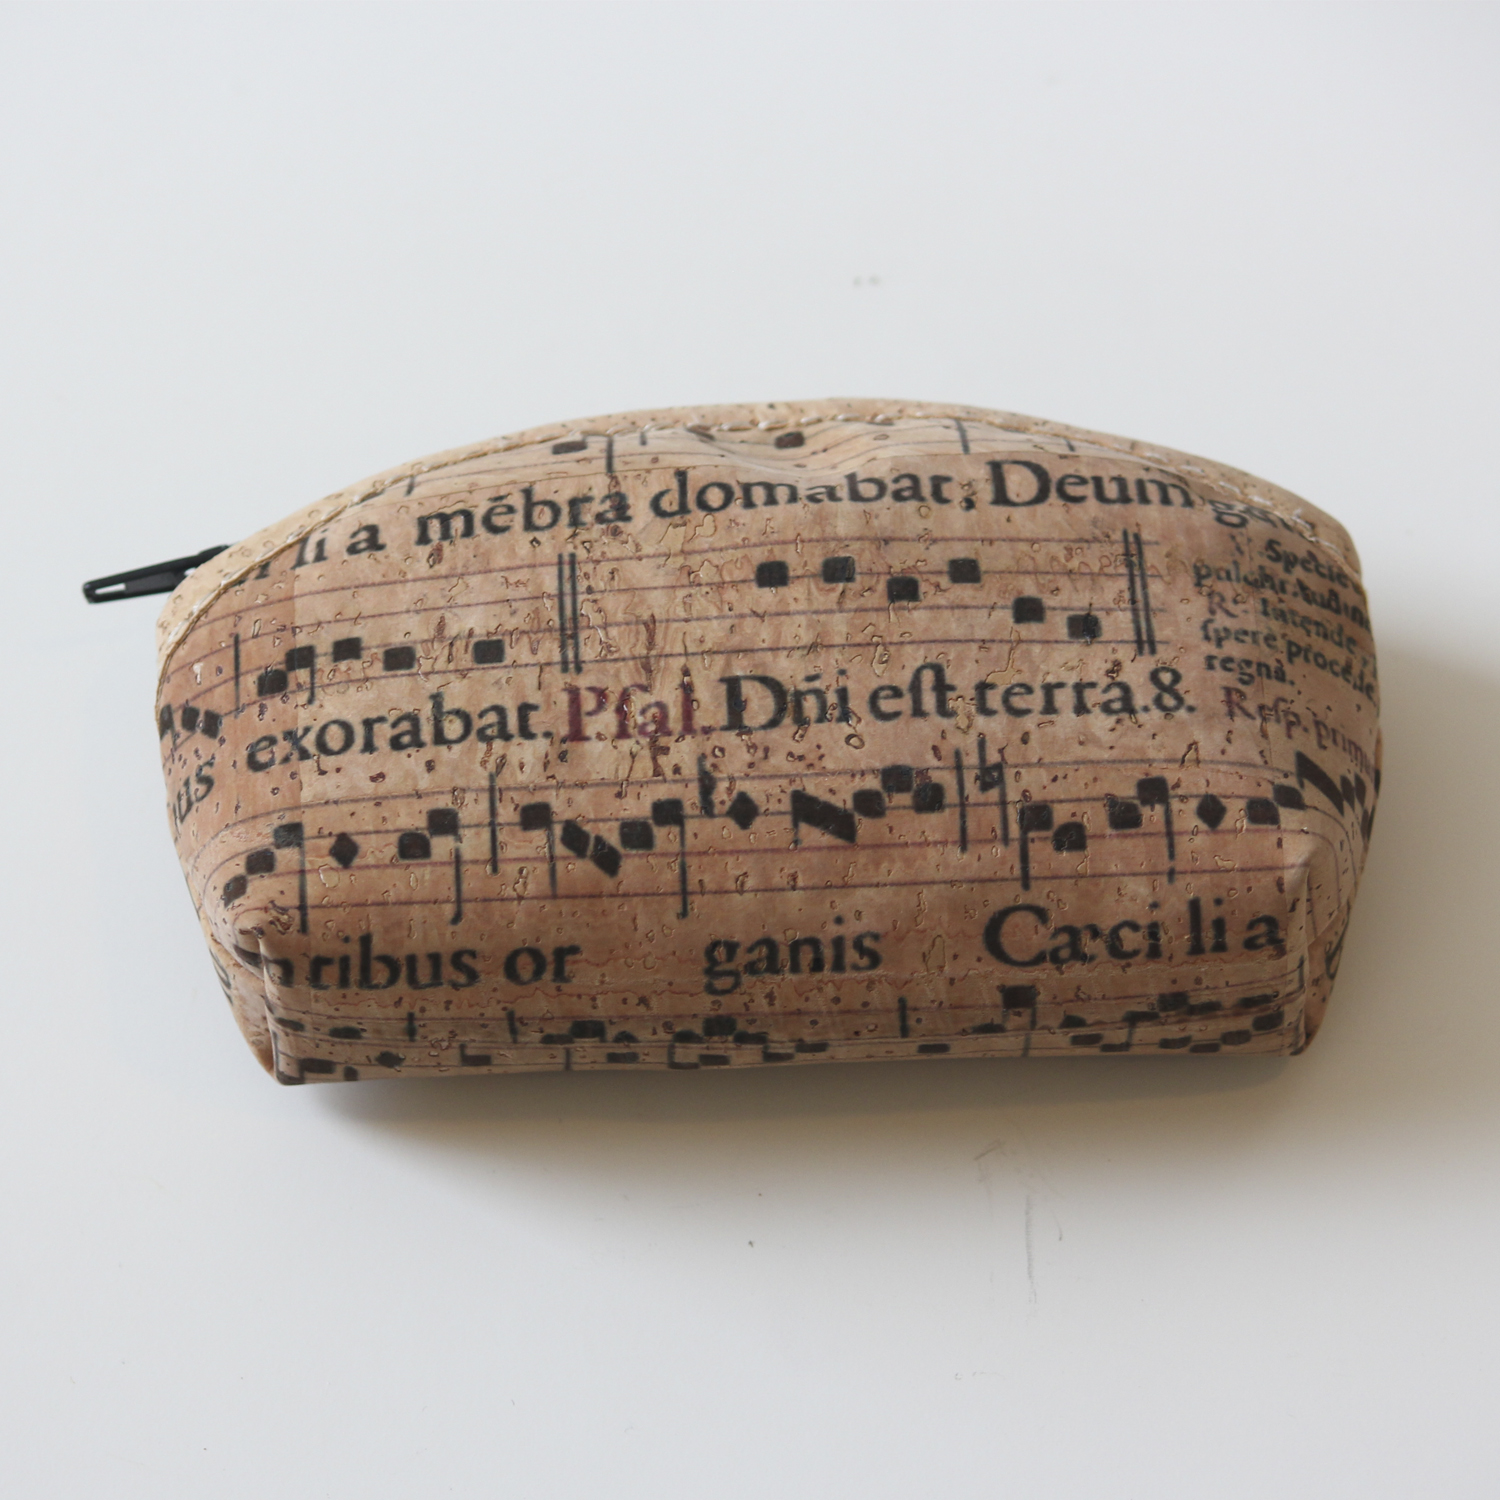 li a mēbra domabat; Deum
Specie
Intende
spere proce.de
regna.
exorabat. Pſal. Dn̄i eſt terra.8.
Reſp. prim
us
ntibus or ganis Cæci li a